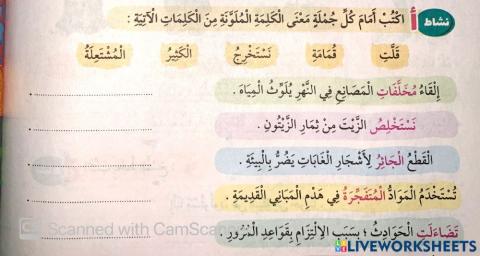 نشاط أ اكْتُبْ أَمَامَ كُلِّ جُمْلَةٍ مَعْنَى الْكَلِمَةِ الْمُلَوَّنَةِ مِنَ الْكَلِمَاتِ الْآتِيَةِ :
قَلَّتِ قُمَامَةِ نَسْتَخْرِجُ الْكَثِيرُ الْمُشْتَعِلَةُ
إِلْقَاءُ مُخَلَّفَاتِ الْمَصَانِعِ فِي النَّهْرِ يُلَوِّثُ الْمِيَاهَ .
نَسْتَخْلِصُ الزَّيْتَ مِنْ ثِمَارِ الزَّيْتُونِ .
الْقَطْعُ الْجَائِرُ لِأَشْجَارِ الْغَابَاتِ يَضُرُّ بِالْبِيئَةِ .
تُسْتَخْدَمُ الْمَوَادُّ الْمُتَفَجِّرَةُ فِي هَدْمِ الْمَبَانِي الْقَدِيمَةِ .
تَضَاءَلَتِ الْحَوَادِثُ ؛ بِسَبَبِ الِالْتِزَامِ بِقَوَاعِدِ الْمُرُورِ .
Scanned with CamScan
LIVEWORKSHEETS